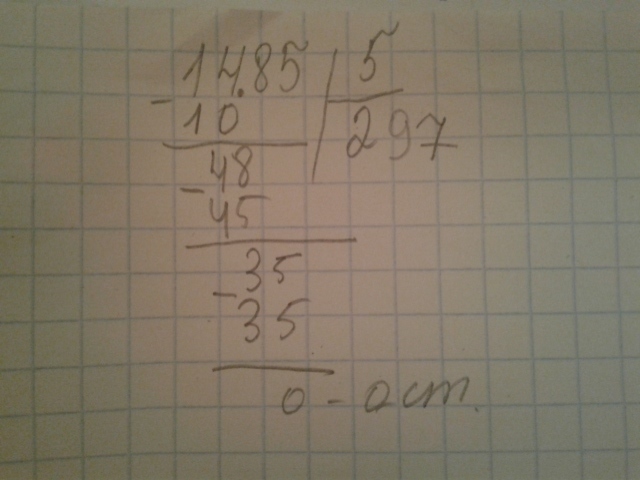 1485 5
- 10 297
48
- 45
35
- 35
0 - ост.